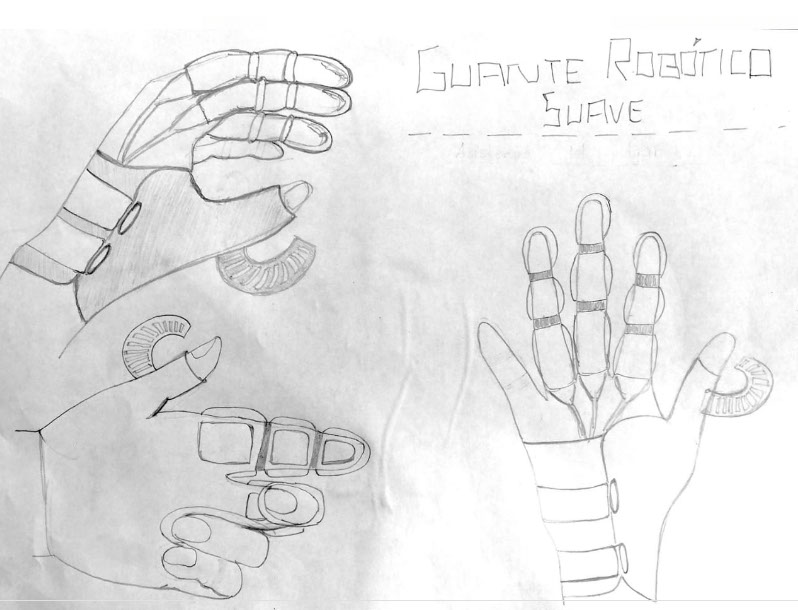 GUANTE ROBÓTICO
SUAVE